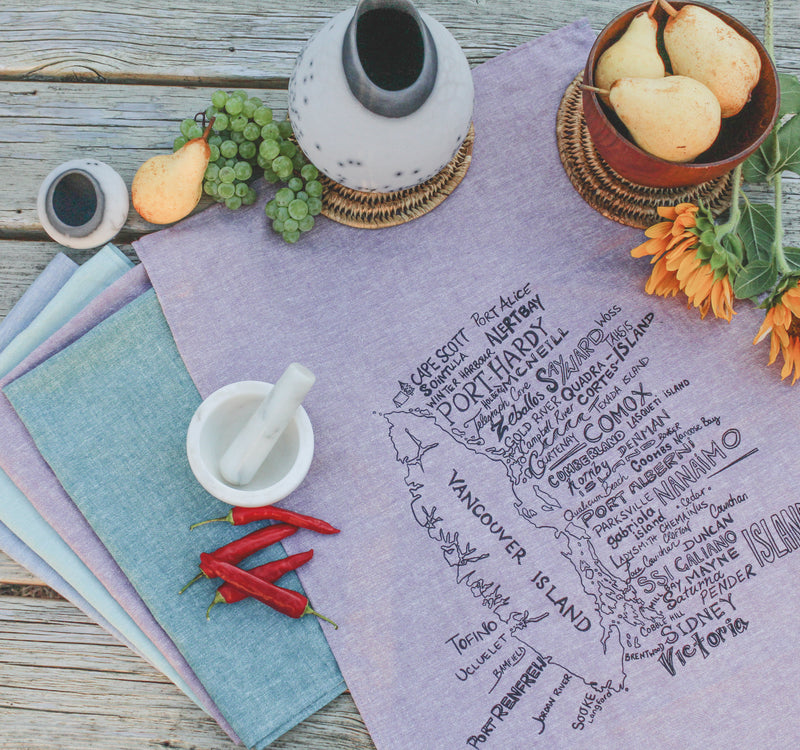 CAPE SCOTT
PORT ALICE
SOINTULA
ALERT BAY
WINTER HARBOUR
PORT HARDY
WOSS
MCNEILL
TAHSIS
Telegraph Cove
SAYWARD
Zeballos
QUADRA-ISLAND
GOLD RIVER
CORTES-
Campbell River
TEXADA ISLAND
COURTENAY
COMOX
LASQUETI ISLAND
CUMBERLAND
Hornby
DENMAN
Qualicum Beach
Coombs
Nanoose Bay
PORT ALBERNI
PARKSVILLE
NANAIMO
gabriola
island
Cedar
LADYSMITH
CHEMAINUS
Cowichan
DUNCAN
ISLAND
SSI
GALIANO
MILL BAY
MAYNE
Saturna
PENDER
COBBLE HILL
SIDNEY
BRENTWOOD
Victoria
VANCOUVER ISLAND
TOFINO
UCLUELET
BAMFIELD
PORT RENFREW
JORDAN RIVER
SOOKE
Langford